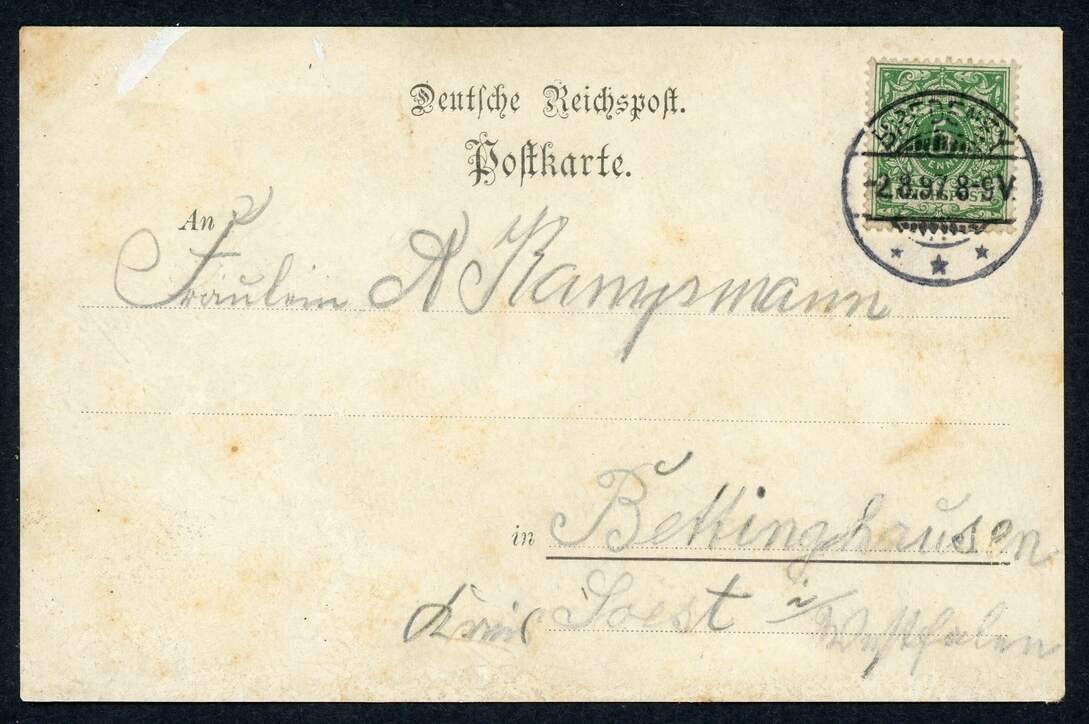 Deutsche Reichspost.
Postkarte.
BREDENEY
5
PFENNIG
REICHSPOST
-2.8.97.8-9V.
An
Fräulein A Kampsmann
in Bettinghausen
Kreis Soest i/ Westfalen